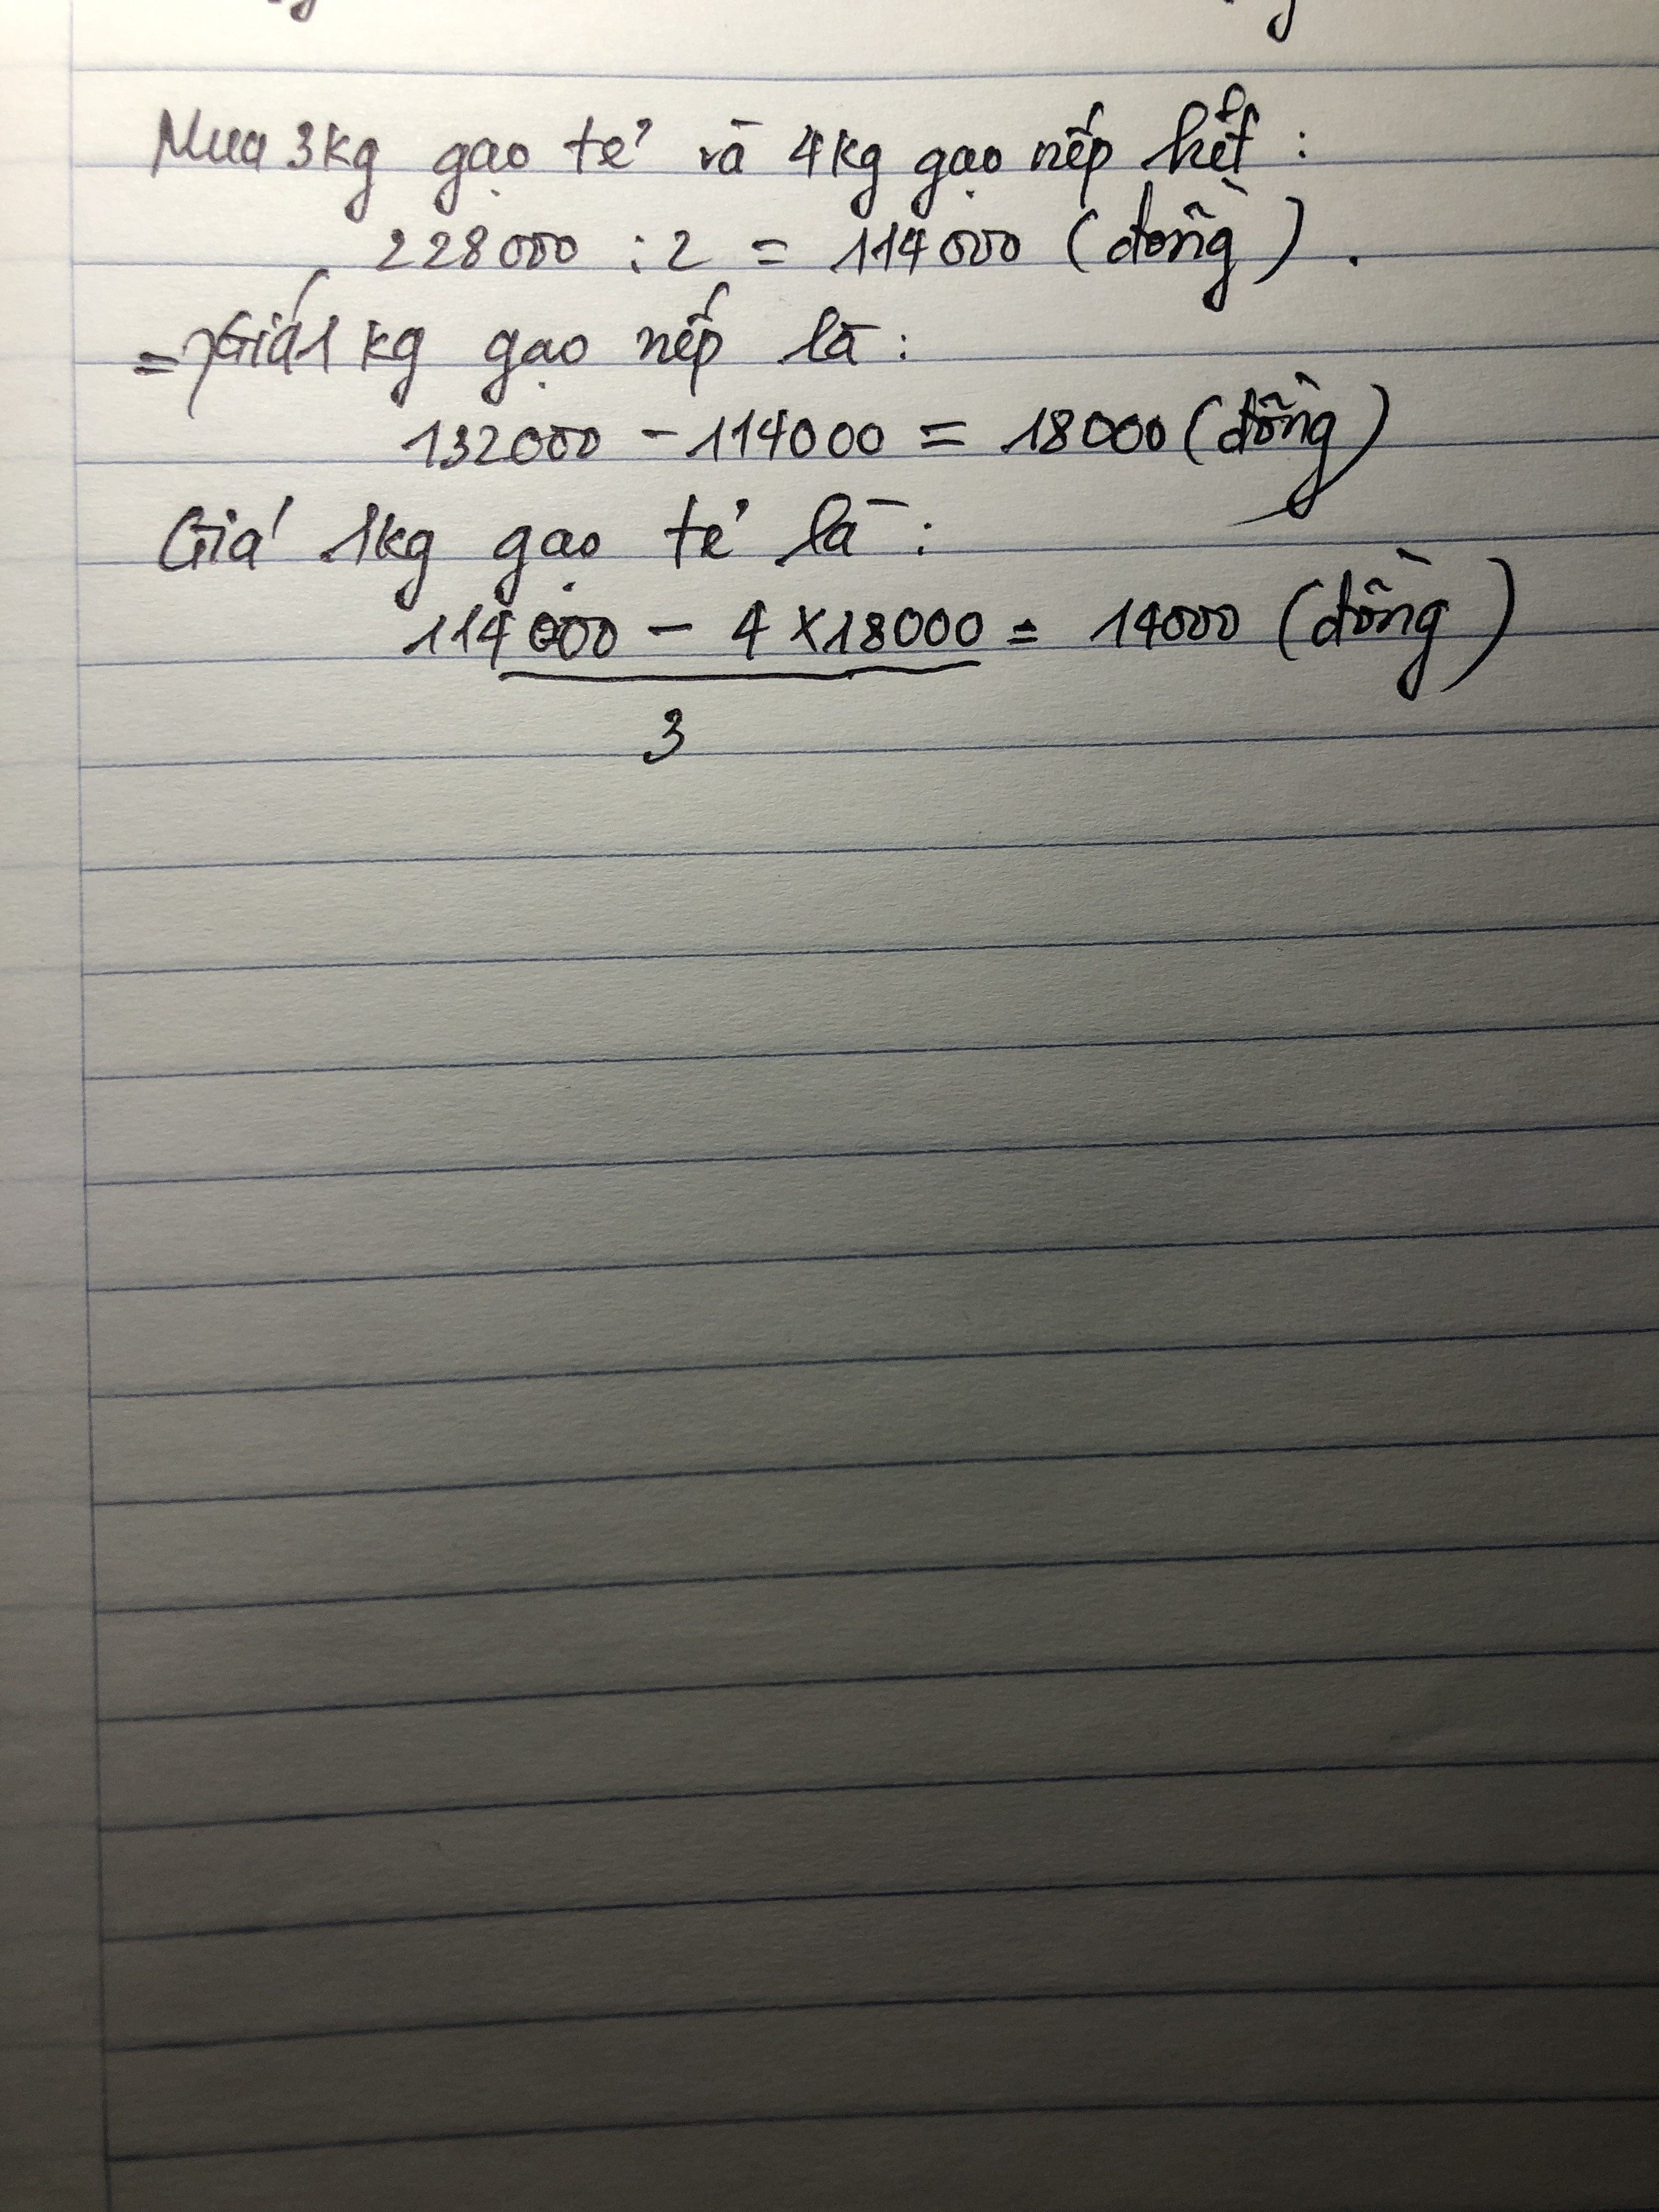 Mua 3kg gạo tẻ và 4kg gạo nếp hết :
228000 : 2 = 114000 (đồng) .
=> Giá 1 kg gạo nếp là :
132000 - 114000 = 18000 (đồng)
Giá 1kg gạo tẻ là :
114000 - 4 x 18000 = 14000 (đồng)
3